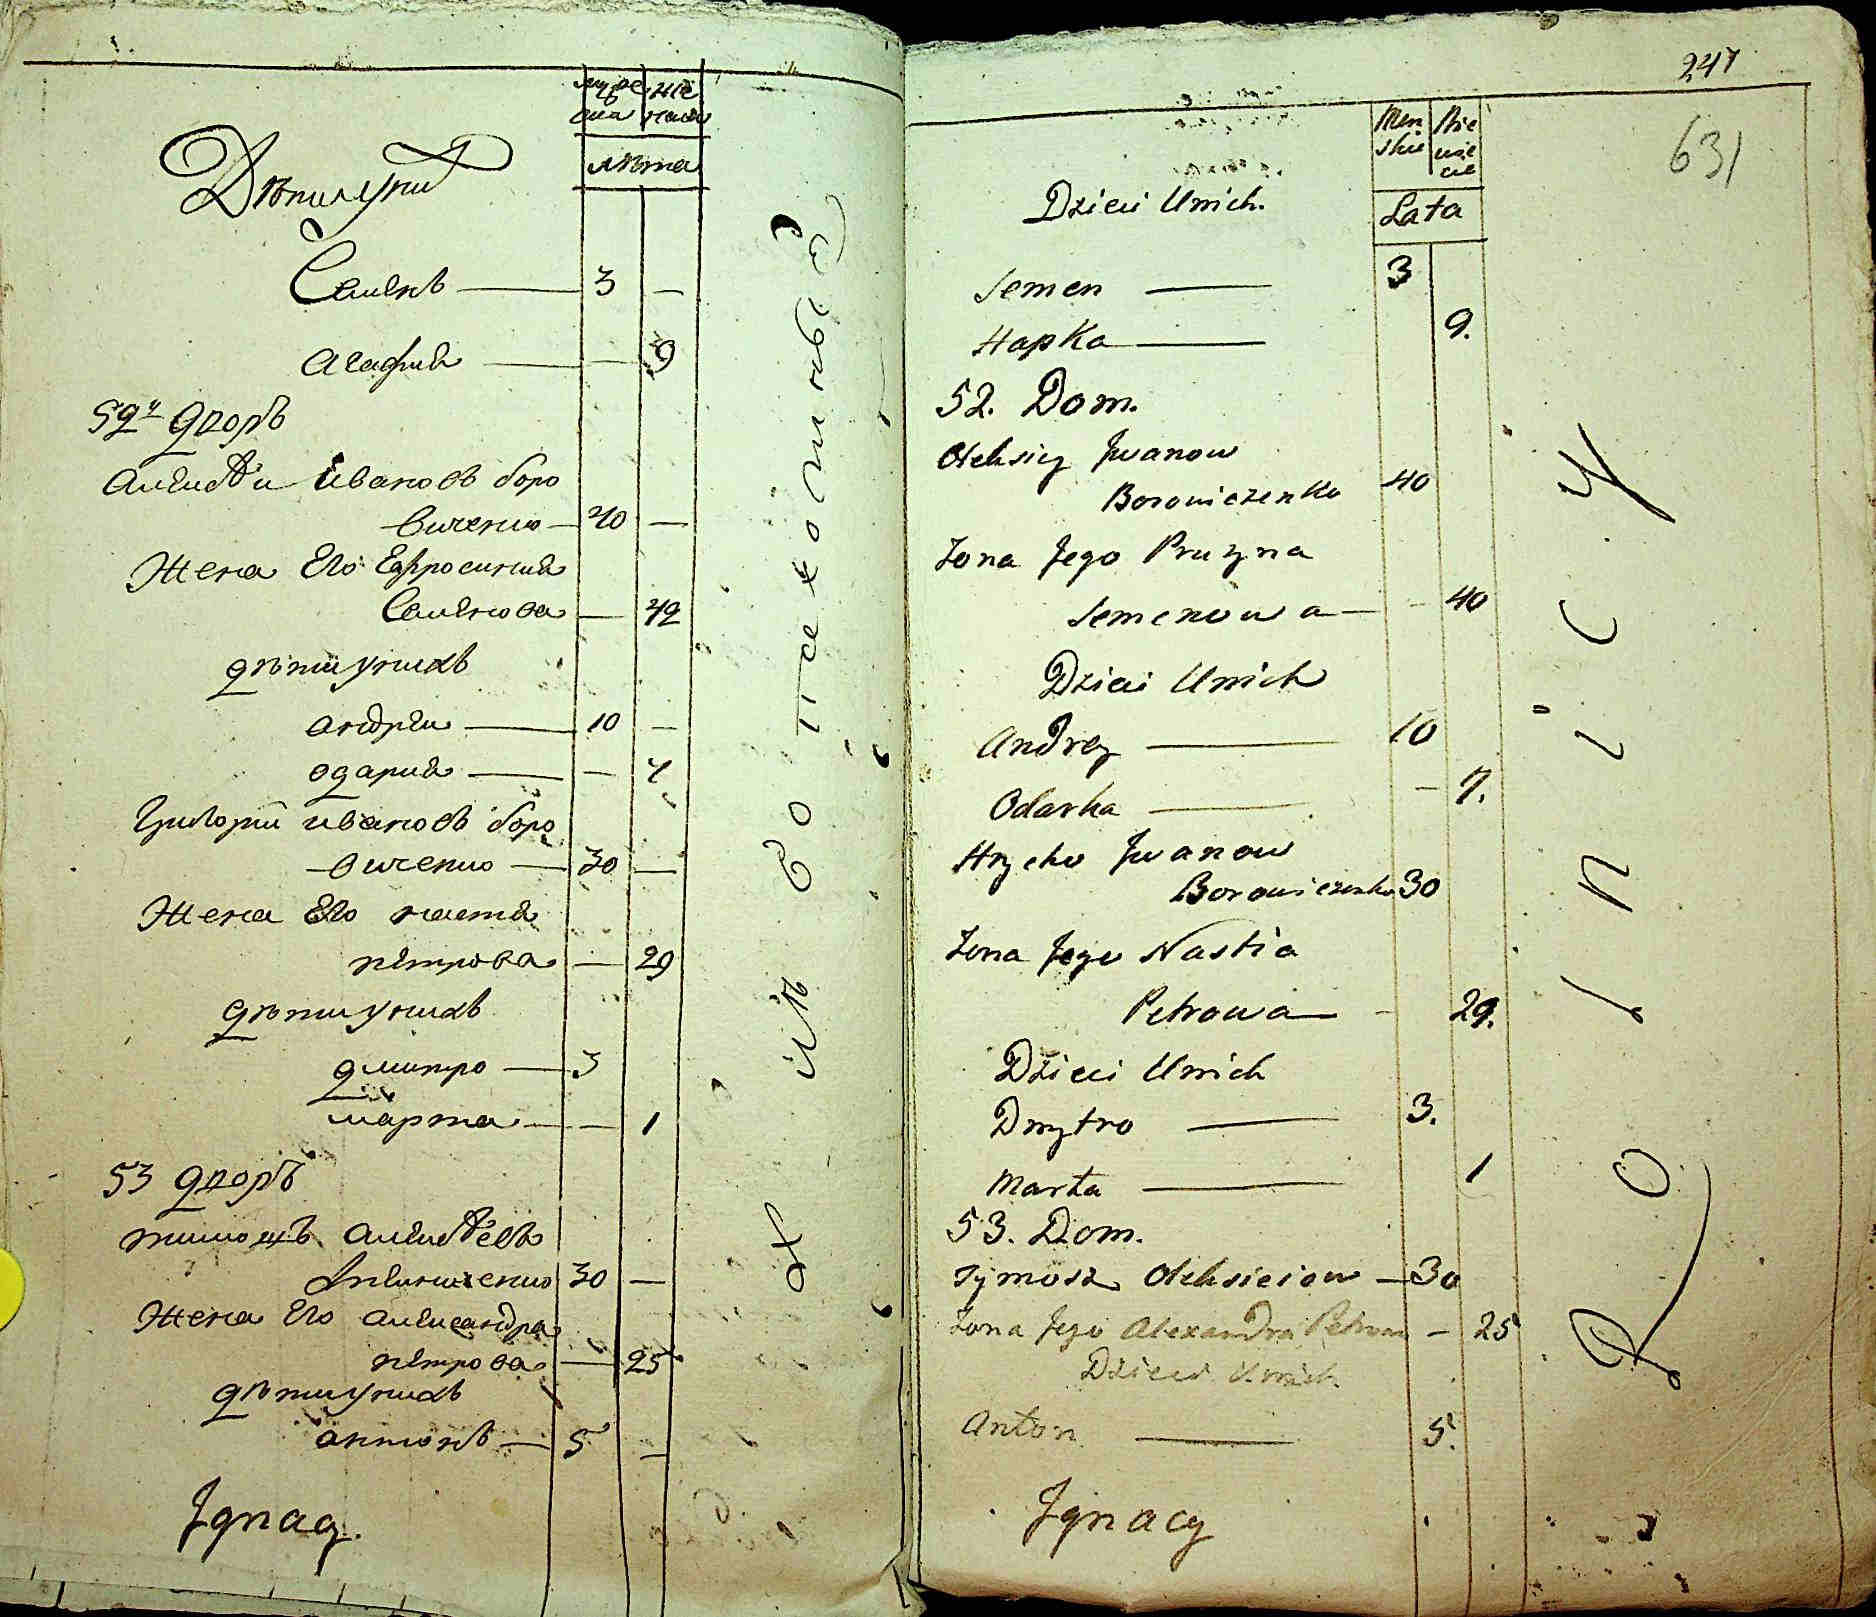 муже
ска
же
нска
лѣта
Дѣти у них
Семенъ — 3 —
Агафия — — 9
52й дворъ
Алексѣй Ивановъ Боро
виченко — 40 —
Жена Его Ефросиния
Семенова — 42
дѣти у нихъ
Андрей — 10 —
Одария — — 7
Григорий Ивановъ Боро
виченко — 30 —
Жена Его Настя
петрова — 29
дѣти у нихъ
дмитро — 3
марта — — 1
53 дворъ
тимошъ Алексѣевъ
30 —
Жена Его Александра
петрова — 25
дѣти у нихъ
антонъ — 5 —
Jgnacy
247
631
Men
skie
Nie
wie
cie
Lata
Dzieci Unich.
Semen — 3
Hapka — 9.
52. Dom.
Oleksiey Jwanow
Borowiczenko 40
Zona Jego Pruzyna
Semenowa — 40
Dzieci Unich
Andrey — 10
Odarka — 7.
Hrycko Jwanow
Borowiczenko 30
Zona Jego Nastia
Petrowa — 29.
Dzieci Unich
Dmytro — 3.
Marta — 1
53. Dom.
Tymosz Oleksieiow — 30
Zona Jego Alexandra Petrow — 25
Dzieci Unich
Anton — 5.
Jgnacy